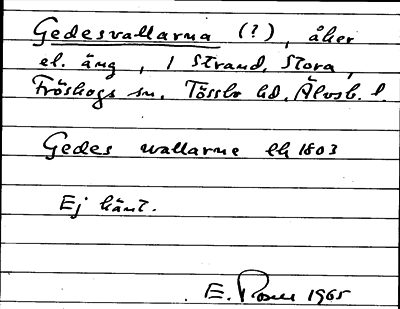 Gedesvallarna (?), åker
el. äng, 1 Strand, Stora,
Fröskogs sn. Tössbo hd. Älvsb. l.
Gedes wallarne lh 1803
Ej känt.
E. 1965